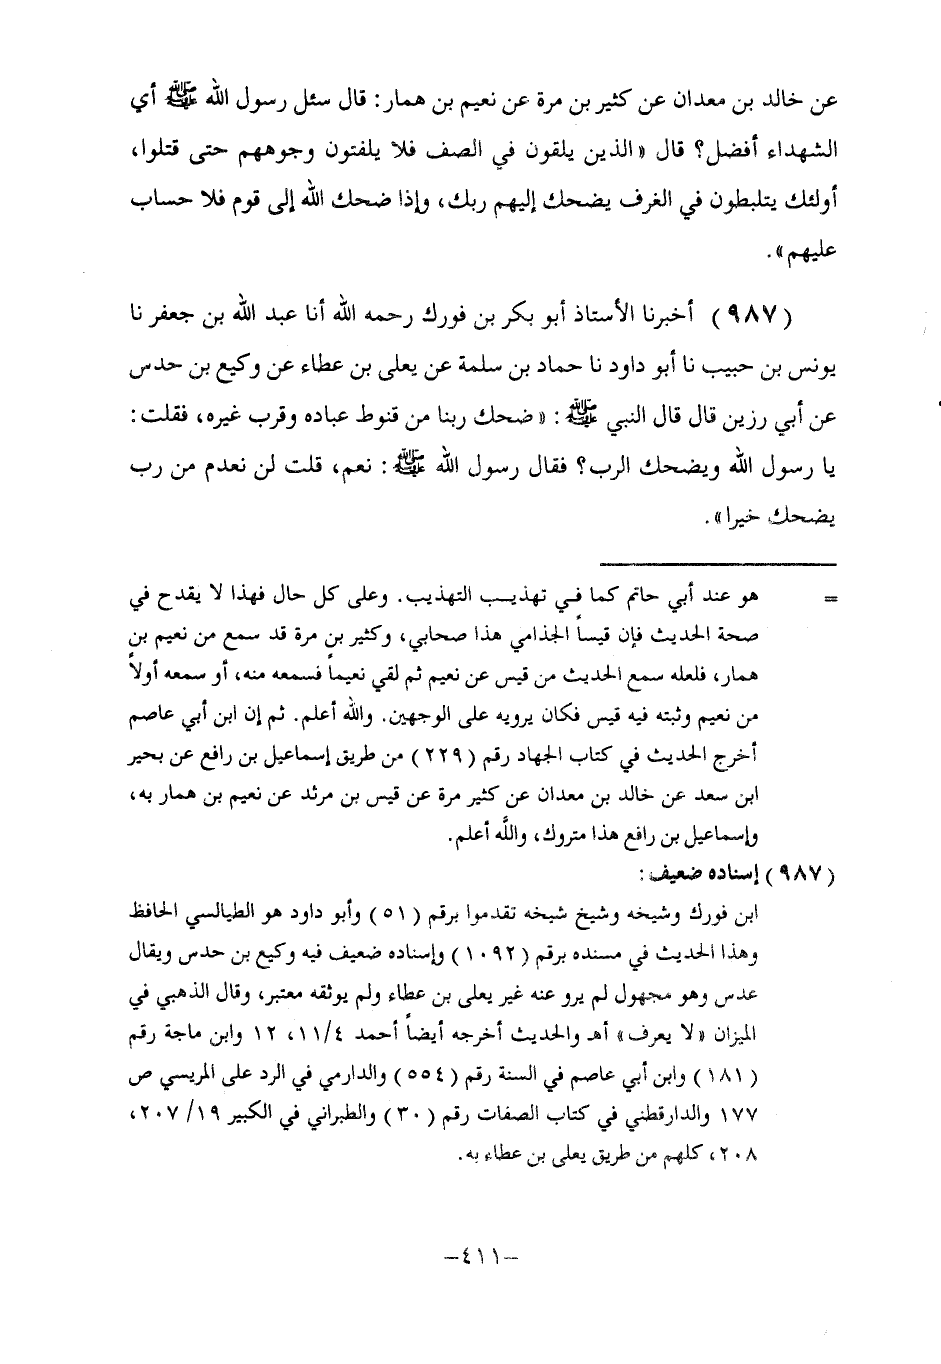 عن خالد بن معدان عن كثير بن مرة عن نعيم بن همار: قال سئل رسول الله ﷺ أي
الشهداء أفضل؟ قال «الذين يلقون في الصف فلا يلفتون وجوههم حتى قتلوا،
أولئك يتلبطون في الغرف يضحك إليهم ربك، وإذا ضحك الله إلى قوم فلا حساب
عليهم».
(٩٨٧) أخبرنا الأستاذ أبو بكر بن فورك رحمه الله أنا عبد الله بن جعفر نا
يونس بن حبيب نا أبو داود نا حماد بن سلمة عن يعلى بن عطاء عن وكيع بن حدس
عن أبي رزين قال قال النبي ﷺ: «ضحك ربنا من قنوط عباده وقرب غيره، فقلت:
يا رسول الله ويضحك الرب؟ فقال رسول الله ﷺ: نعم، قلت لن نعدم من رب
يضحك خيرا».
= هو عند أبي حاتم كما في تهذيب التهذيب. وعلى كل حال فهذا لا يقدح في
صحة الحديث فإن قيساً الجذامي هذا صحابي، وكثير بن مرة قد سمع من نعيم بن
همار، فلعله سمع الحديث من قيس عن نعيم ثم لقي نعيماً فسمعه منه، أو سمعه أولاً
من نعيم وثبته فيه قيس فكان يرويه على الوجهين. والله أعلم. ثم إن ابن أبي عاصم
أخرج الحديث في كتاب الجهاد رقم (٢٢٩) من طريق إسماعيل بن رافع عن بحير
ابن سعد عن خالد بن معدان عن كثير مرة عن قيس بن مرثد عن نعيم بن همار به،
وإسماعيل بن رافع هذا متروك، واللَّه أعلم.
(٩٨٧) إسناده ضعيف:
ابن فورك وشيخه وشيخ شيخه تقدموا برقم (٥١) وأبو داود هو الطيالسي الحافظ
وهذا الحديث في مسنده برقم (١٠٩٢) وإسناده ضعيف فيه وكيع بن حدس ويقال
عدس وهو مجهول لم يرو عنه غير يعلى بن عطاء ولم يوثقه معتبر، وقال الذهبي في
الميزان «لا يعرف» أهـ والحديث أخرجه أيضاً أحمد ١١/٤، ١٢ وابن ماجة رقم
(١٨١) وابن أبي عاصم في السنة رقم (٥٥٤) والدارمي في الرد على المريسي ص
١٧٧ والدارقطني في كتاب الصفات رقم (٣٠) والطبراني في الكبير ١٩/ ٢٠٧،
٢٠٨، كلهم من طريق يعلى بن عطاء به.
–٤١١–